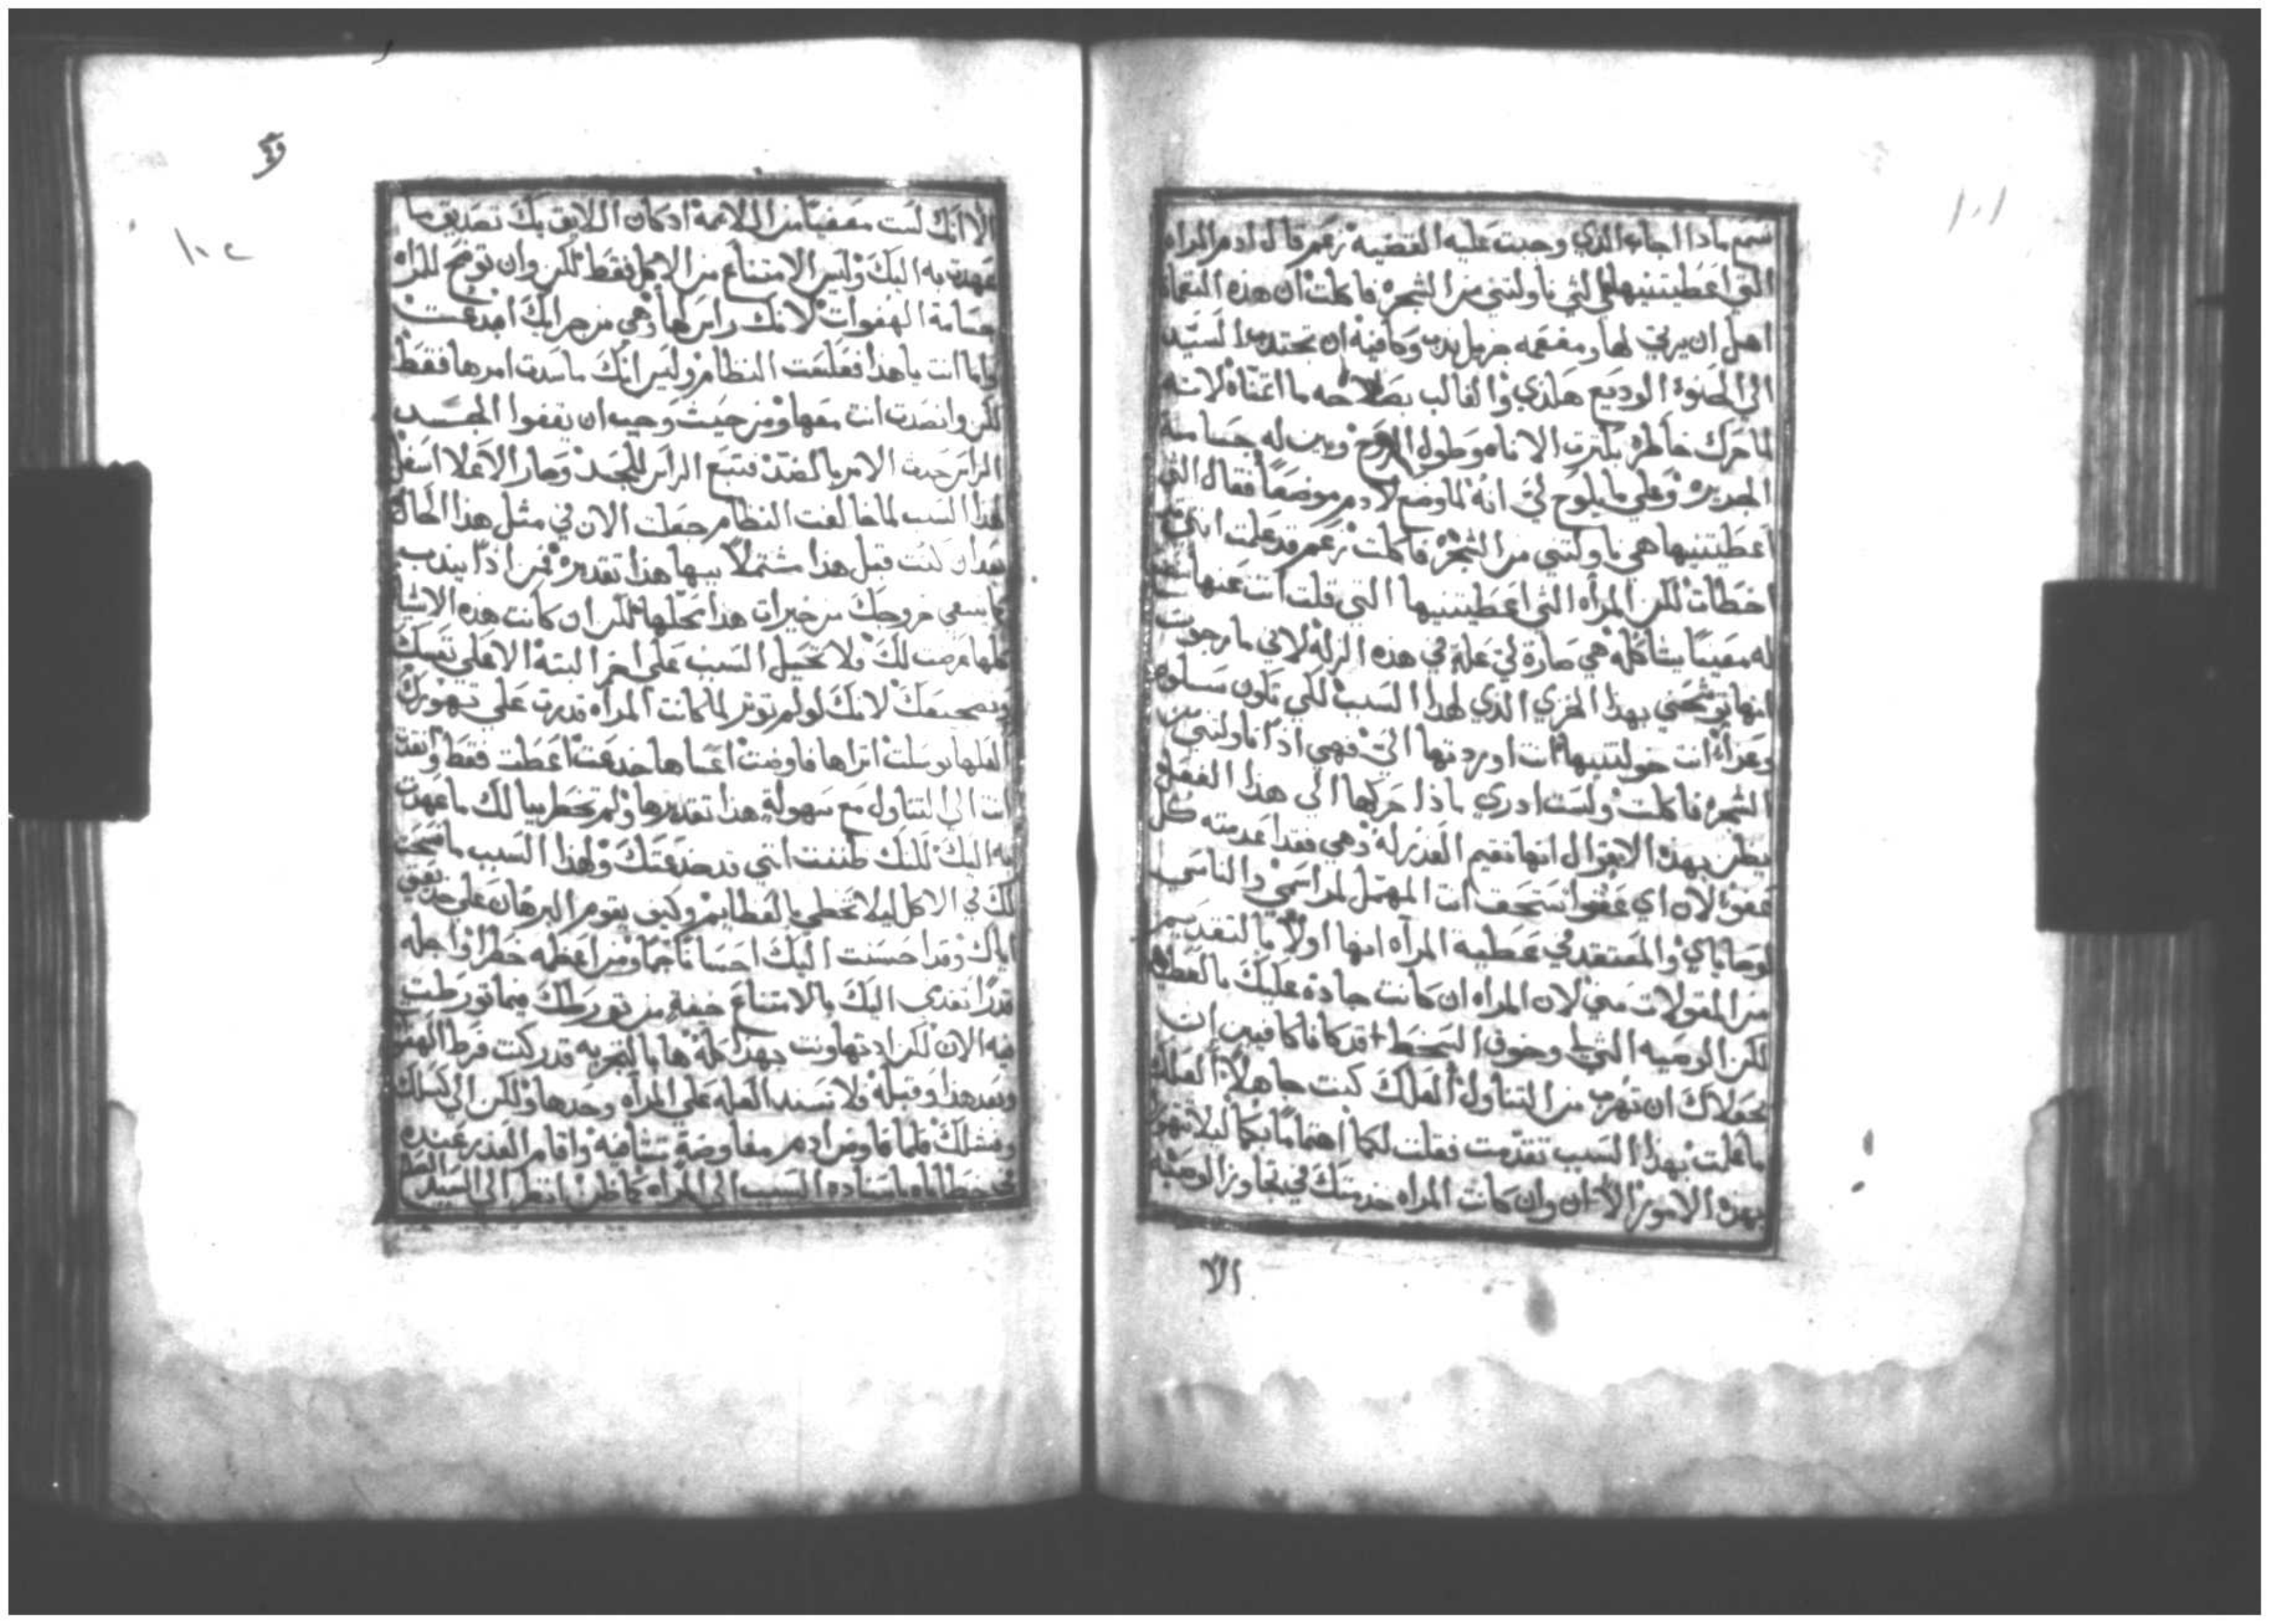 ١٠١
سمع ماذا اجاب الذي وجبت عليه القضيه زعم قال ادم المراه
التي اعطيتنيها هي التي ناولتني من الشجره فاكلت ان هذه النغمات
اهل ان يرثي لها ومفعمه جزيل ندب وكافيه ان تجتدب السيد
الي الحنوة الوديع هكذي والغالب بصلاحه ما اتمناه لانه
لما حرك خاطره بكثرت الاناه وطول الروح وبين له جسامة
الجريره وعلي ما يلوح لي انه لما وضع لادم موضعا فقال التي
اعطيتنيها هي ناولتني من الشجره فاكلت زعم قد علمت انني
اخطات لكن المراه التي اعطيتنيها التي قلت انت عنها
له معينا يشاكله هي صارة لي علة في هذه الزلة لاني ما رجوت
انها توشحني بهذا الخزي الذي لهذا السبب لكي تكون سلوه
وعزاء انت خولتنيها انت اوردتها الي فهي اذا ناولتني من
الشجره فاكلت ولست ادري ماذا حركها الي هذا الفعل
يظن بهذه الاقوال انها تقيم العذر له وهي فقد اعدمته كل
عفوة لان اي عفوا تستحق انت المهمل لمراسمي والناسي
لوصاياي والمعتقد في عطية المرآه انها اولا بالتقديم
من المقولات مني لان المراه ان كانت جادة عليك بالعطيه
لكن الوصيه التي لي وخوف السخط قد كانا كافيين ان
يجعلاك ان تهرب من التناول العلك كنت جاهلا العلك
ما علمت بهذا السبب تقدمت فقلت لكما اهتماما بكما ليلا تهوا
بهذه الامور الا ان وان كانت المراه خدمتك في تجاوز الوصيه
الا
١٠٢
الا انك لست معفيا من اللايمة اد كان اللايق بك تصديق ما
عهدت به اليك وليس الامتناع من الاكل فقط لكن وان توضح للمراه
جسامة الهفوات لانك راس لها وهي من جرايك ابدعت
واما انت يا هذا فعكست النظام وليس انك ما سددت امرها فقط
لكن وانصدت انت معها ومن حيث وجب ان يقفوا الجسد
الراس حدث الامر بالضد فتبع الراس للجسد وصار الاعلا اسفل
لهذا السبب لما خالفت النظام حصلت الان في مثل هذا الحال
بعد ان كنت قبل هذا مشتملا ببها هذا تقديره فمن اذا يندب
كما ينبغي خروجك من خيرات هذا محلها لكن ان كانت هذه الاشيا
كلها عرضت لك فلا تحيل السبب علي اخر البتة الا علي نفسك
وضجعك لانك لو لم توثر لما كانت المراه قدرت علي تهويرك
العلها توسلت اتراها فاوضت اعساها خدعت اعطت فقط وانقدت
انت الي التناول مع سهولة هذا تقديرها ولم تخطر ببالك ما عهدت
به اليك للنك ظننت انني قد خدعتك ولهذا السبب ما سمحت
لك في الاكل ليلا تحظي بالعظايم وكيف يقوم البرهان علي
اياك وقد احسنت اليك احسانا جما ومن اعظمه خطرا واجله
قدرا تقدمي اليك بالامتناع خيفة من تورطك فيما تورطت
فيه الان لكن اد تهاونت بهذا كله ها بالتجربه قد ركت فرط الهفوه
وبعد هذا وقبله فلا تسند العله علي المرآه وحدها ولكن الي كسلك
وفشلك فلما فاوض ادم مفاوضة شافيه واقام العذر عنده
عن خطاياه باسناده السبب الي المراه كما ظن انظر الي السيد